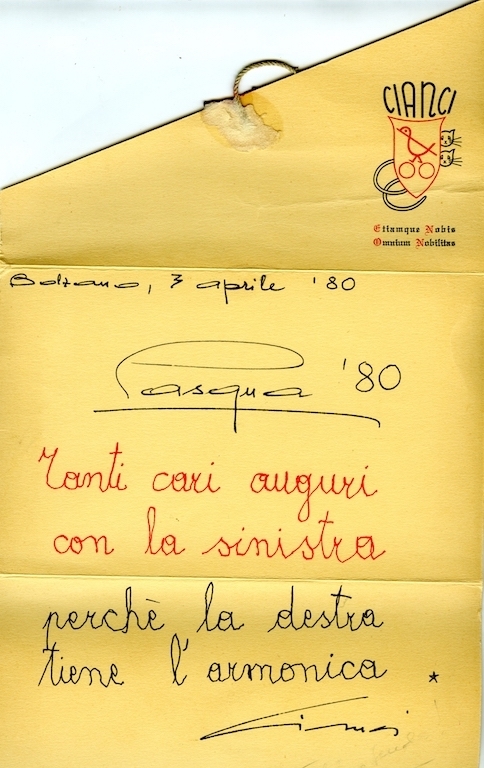 CIANCI
Etiamque Nobis
Omnium Nobilitas
Bolzano, 3 aprile '80
Pasqua '80
Tanti cari auguri
con la sinistra
perchè la destra
tiene l'armonica *
Cianci